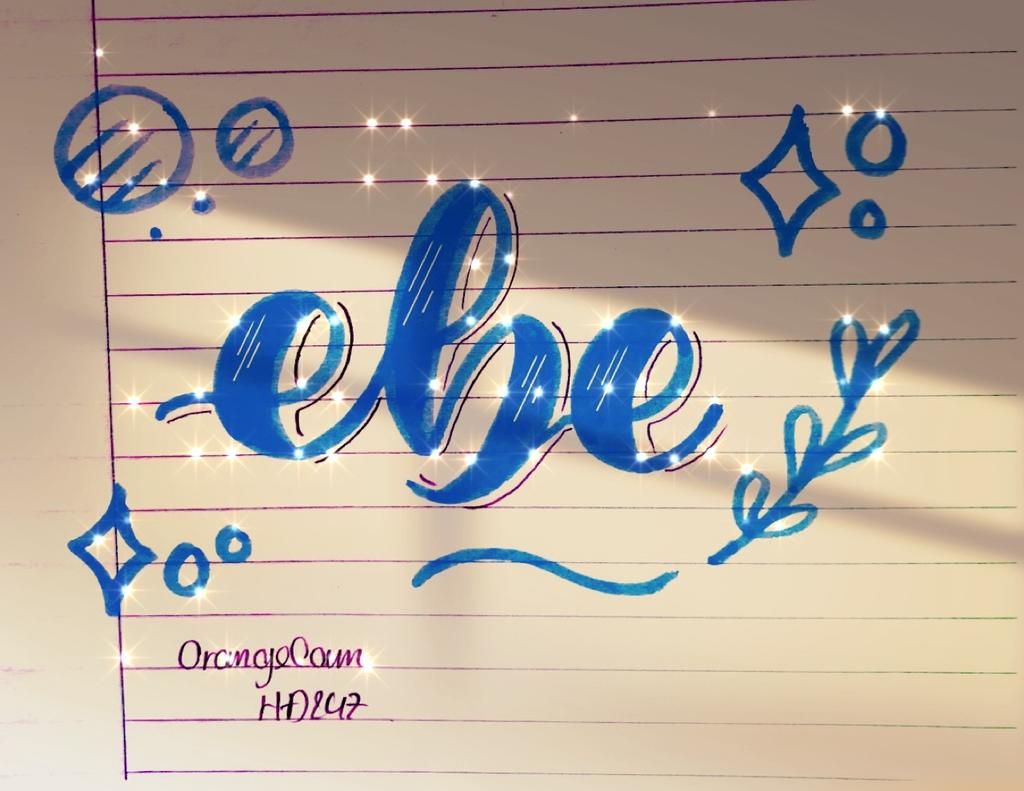 ebe
OrangeCoun
HD247